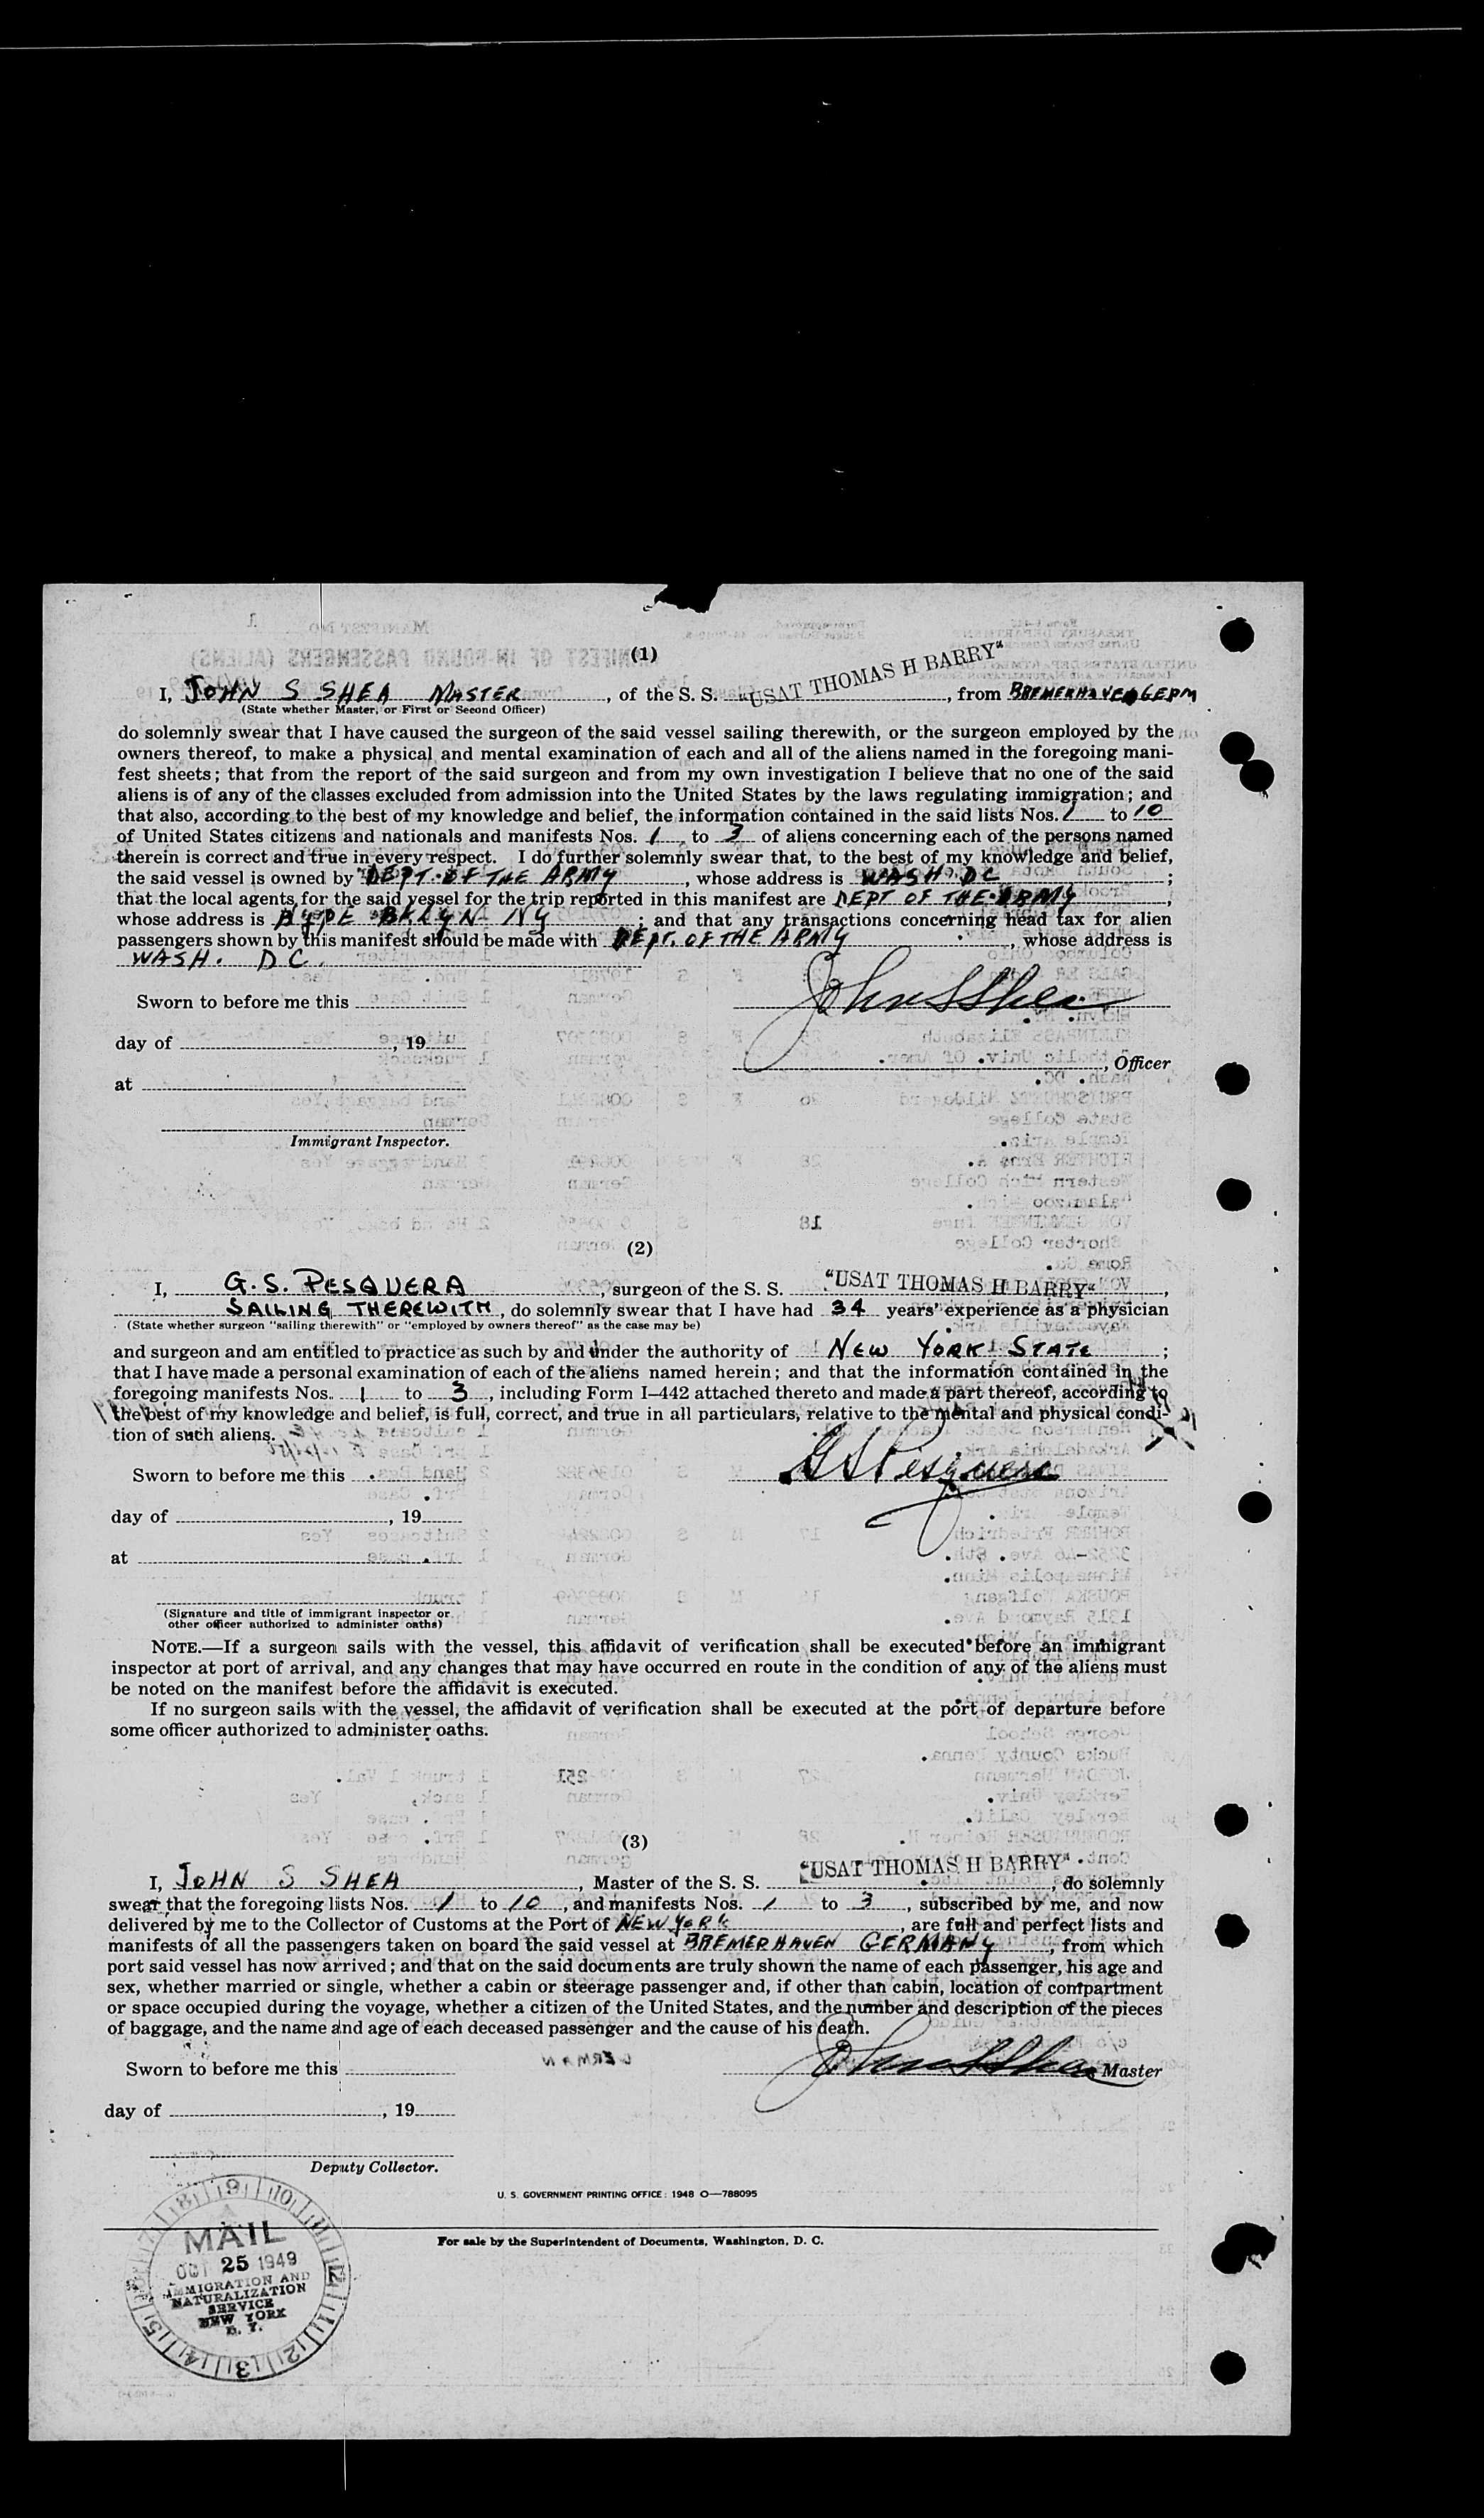 (1)
I, JOHN S SHEA MASTER, of the S. S. "USAT THOMAS H BARRY", from BREMERHAVEN GERM
(State whether Master, or First or Second Officer)
do solemnly swear that I have caused the surgeon of the said vessel sailing therewith, or the surgeon employed by the
owners thereof, to make a physical and mental examination of each and all of the aliens named in the foregoing mani-
fest sheets; that from the report of the said surgeon and from my own investigation I believe that no one of the said
aliens is of any of the classes excluded from admission into the United States by the laws regulating immigration; and
that also, according to the best of my knowledge and belief, the information contained in the said lists Nos. 1 to 10
of United States citizens and nationals and manifests Nos. 1 to 3 of aliens concerning each of the persons named
therein is correct and true in every respect. I do further solemnly swear that, to the best of my knowledge and belief,
the said vessel is owned by DEPT. OF THE ARMY, whose address is WASH. DC;
that the local agents for the said vessel for the trip reported in this manifest are DEPT OF THE ARMY,
whose address is NYPE BKLYN NY; and that any transactions concerning head tax for alien
passengers shown by this manifest should be made with DEPT. OF THE ARMY, whose address is
WASH. DC.
Sworn to before me this
John S Shea
day of , 19
, Officer
at
Immigrant Inspector.
(2)
I, G. S. PESQUERA, surgeon of the S. S. "USAT THOMAS H BARRY",
SAILING THEREWITH, do solemnly swear that I have had 34 years' experience as a physician
(State whether surgeon "sailing therewith" or "employed by owners thereof" as the case may be)
and surgeon and am entitled to practice as such by and under the authority of NEW YORK STATE;
that I have made a personal examination of each of the aliens named herein; and that the information contained in the
foregoing manifests Nos. 1 to 3, including Form I-442 attached thereto and made a part thereof, according to
the best of my knowledge and belief, is full, correct, and true in all particulars, relative to the mental and physical condi-
tion of such aliens.
Sworn to before me this
G S Pesquera
day of , 19
at
(Signature and title of immigrant inspector or
other officer authorized to administer oaths)
NOTE.—If a surgeon sails with the vessel, this affidavit of verification shall be executed before an immigrant
inspector at port of arrival, and any changes that may have occurred en route in the condition of any of the aliens must
be noted on the manifest before the affidavit is executed.
If no surgeon sails with the vessel, the affidavit of verification shall be executed at the port of departure before
some officer authorized to administer oaths.
(3)
I, JOHN S SHEA, Master of the S. S. "USAT THOMAS H BARRY", do solemnly
swear that the foregoing lists Nos. 1 to 10, and manifests Nos. 1 to 3, subscribed by me, and now
delivered by me to the Collector of Customs at the Port of NEW YORK, are full and perfect lists and
manifests of all the passengers taken on board the said vessel at BREMERHAVEN GERMANY, from which
port said vessel has now arrived; and that on the said documents are truly shown the name of each passenger, his age and
sex, whether married or single, whether a cabin or steerage passenger and, if other than cabin, location of compartment
or space occupied during the voyage, whether a citizen of the United States, and the number and description of the pieces
of baggage, and the name and age of each deceased passenger and the cause of his death.
Sworn to before me this
John S Shea Master
day of , 19
Deputy Collector.
U. S. GOVERNMENT PRINTING OFFICE : 1948 O—788095
For sale by the Superintendent of Documents, Washington, D. C.
MAIL
OCT 25 1949
IMMIGRATION AND
NATURALIZATION
SERVICE
NEW YORK
N. Y.